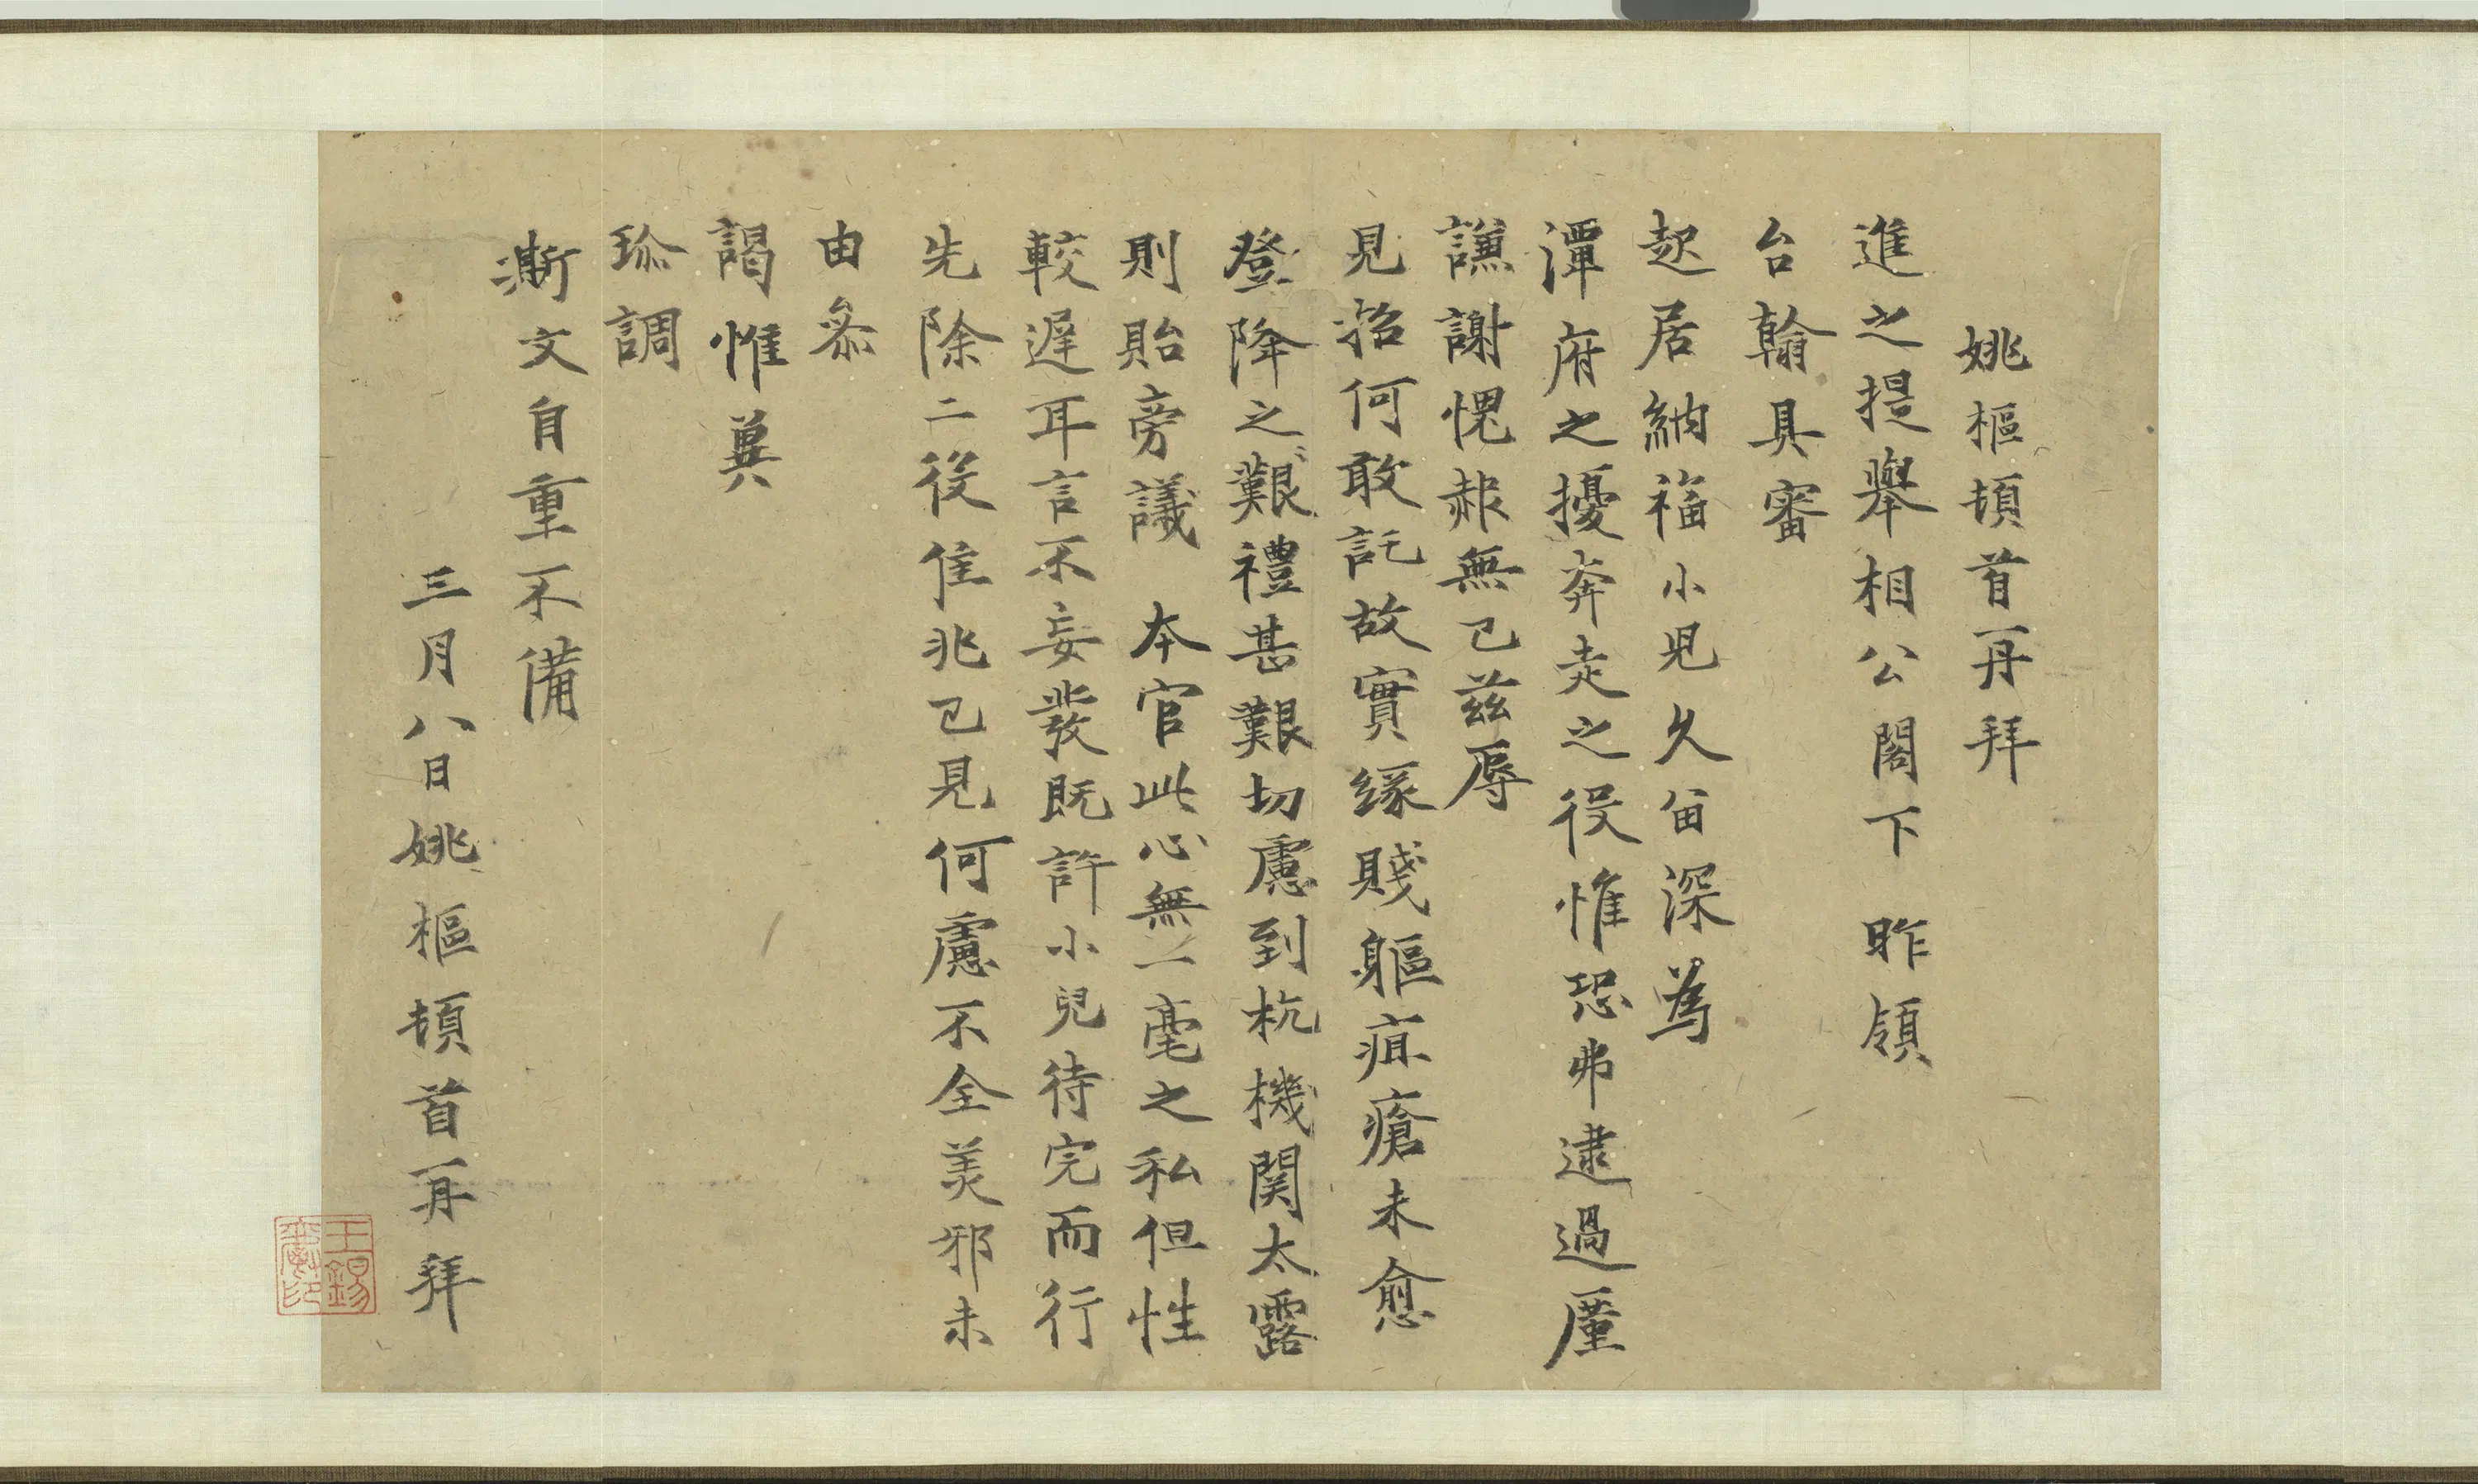 姚樞頓首再拜
進之提舉相公閣下 昨領
台翰具審
起居納福小児久留深為
潭府之擾奔走之役惟恐弗逮過蒙
謙謝愧赧無已茲辱
見招何敢託故實緣賤軀疽瘡未愈
登降之艱禮甚艱切慮到杭機関太露
則貽旁議 本官此心無一毫之私但性
較遲耳言不妄發既許小兒待完而行
先除二役隹兆已見何慮不全美邪未
由叅
謁惟冀
珎調
漸文自重不備
三月八日姚樞頓首再拜
王錫
印